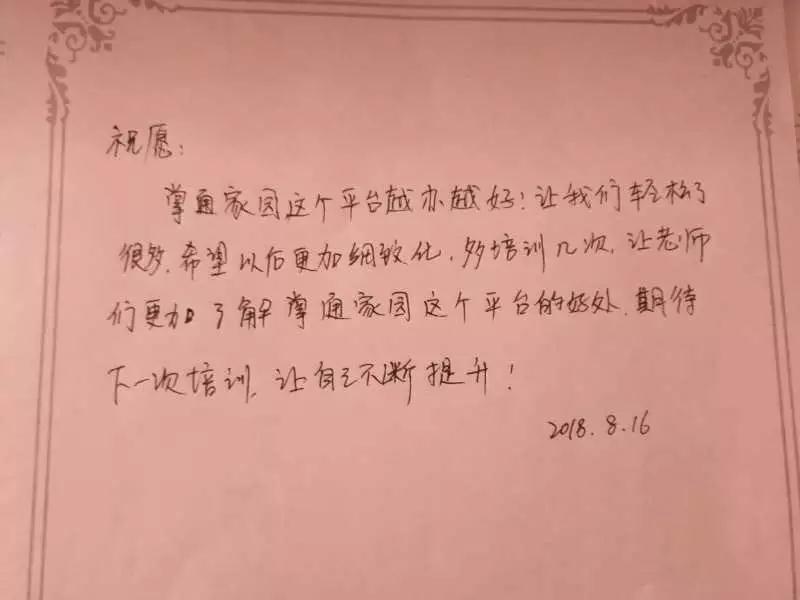 祝愿:
掌通家园这个平台越办越好!让我们轻松了
很多.希望以后更加细致化.多培训几次.让老师
们更加了解掌通家园这个平台的好处.期待
下一次培训.让自己不断提升!
2018.8.16